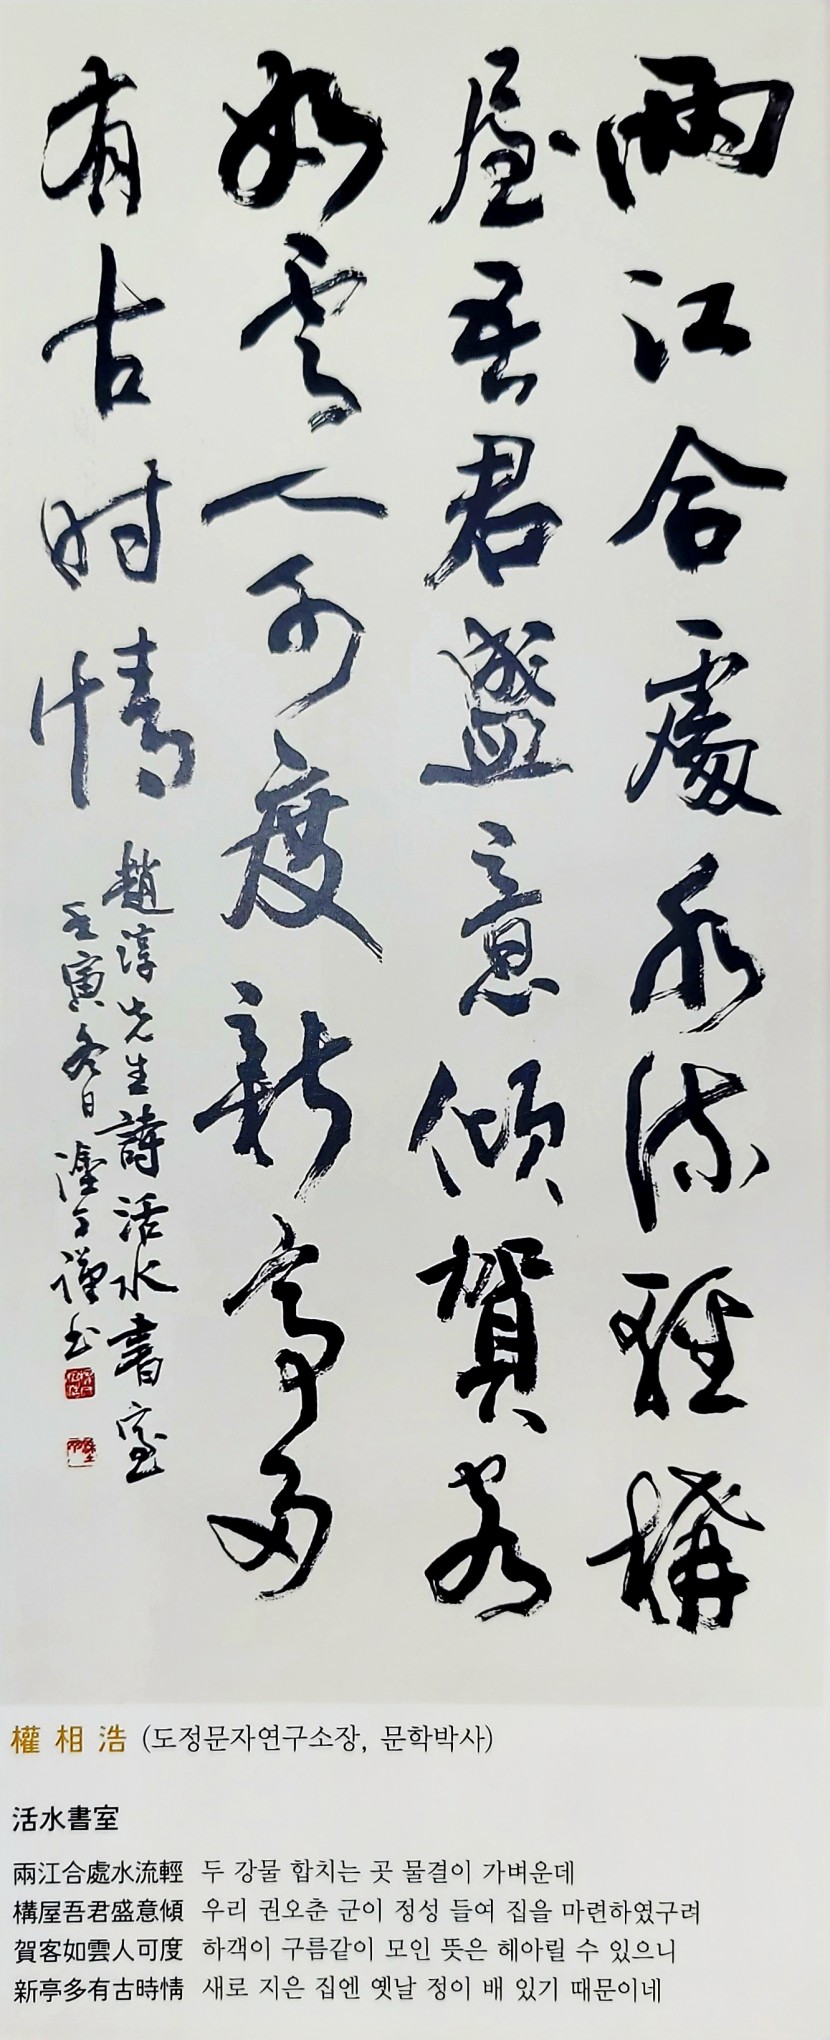 兩江合處水流輕構
屋吾君盛意傾賀客
如雲人可度新亭多
有古时情
趙淳先生詩活水書室
壬寅冬日塗丁謹书
權相浩 (도정문자연구소장, 문학박사)
活水書室
兩江合處水流輕 두 강물 합치는 곳 물결이 가벼운데
構屋吾君盛意傾 우리 권오춘 군이 정성 들여 집을 마련하였구려
賀客如雲人可度 하객이 구름같이 모인 뜻은 헤아릴 수 있으니
新亭多有古時情 새로 지은 집엔 옛날 정이 배 있기 때문이네